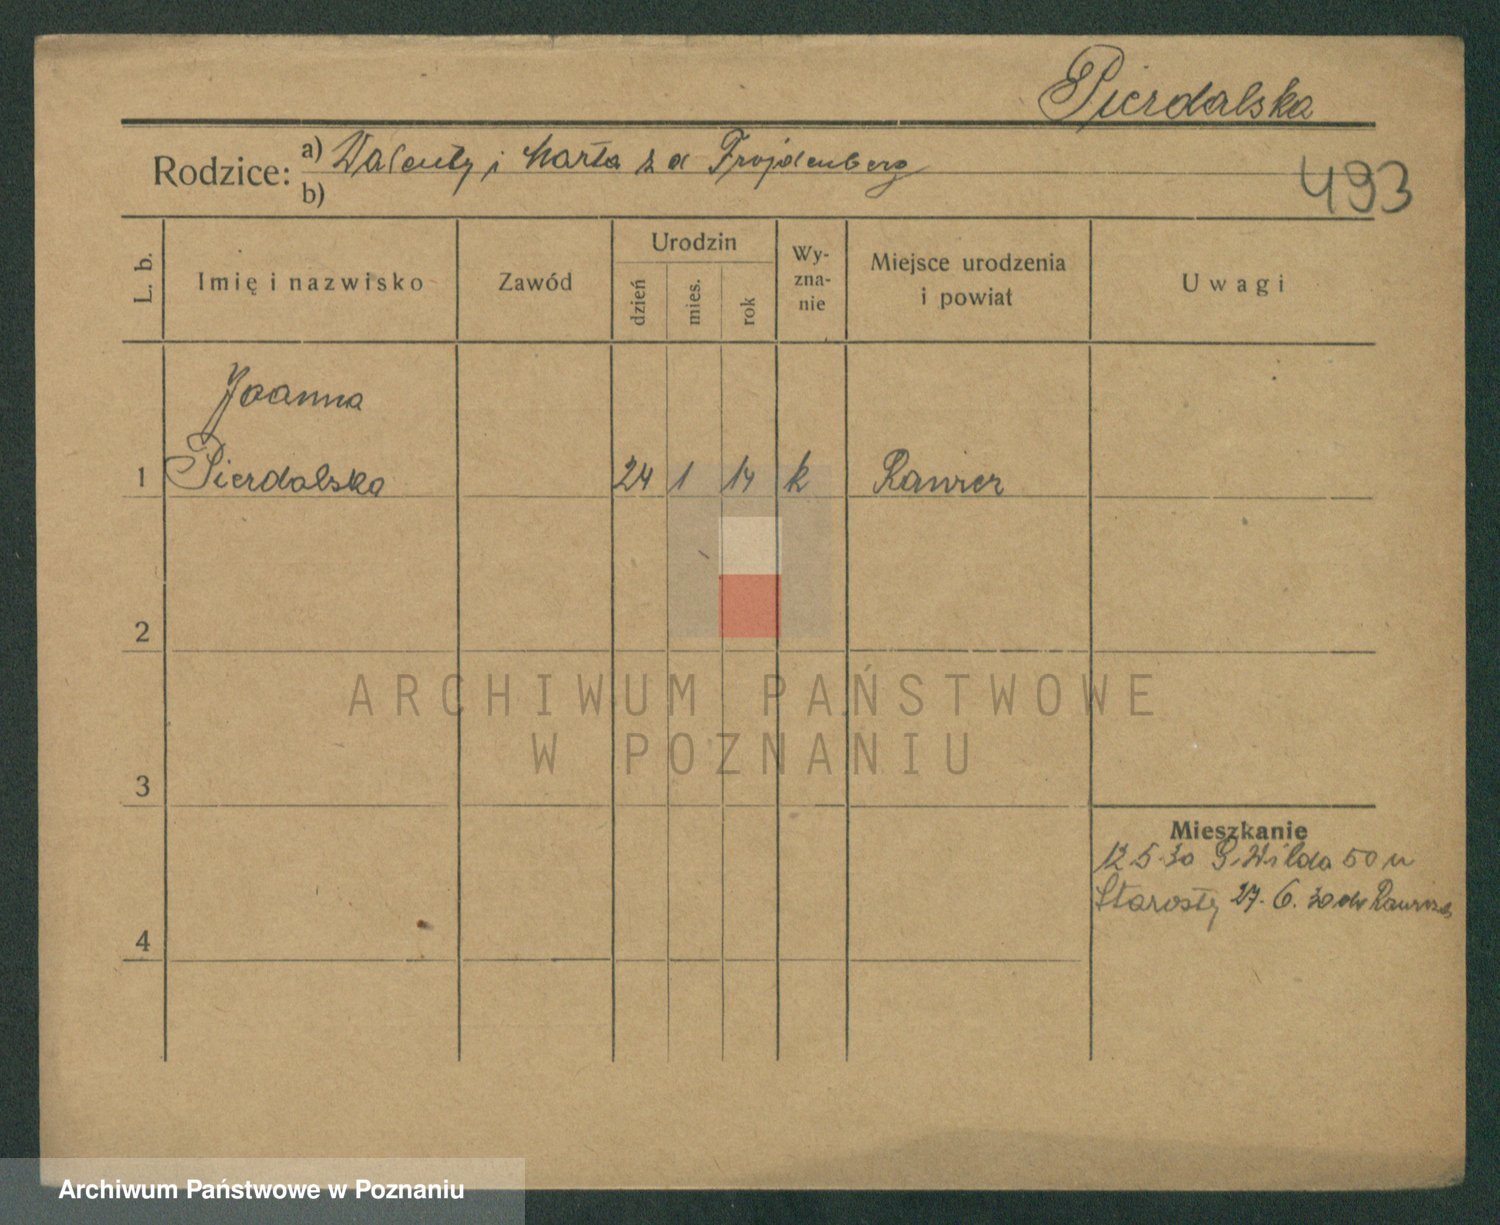 Pierdalska
Rodzice: a) Walenty i Marta z d Frojdenberg
b)
493
L. b.
Imię i nazwisko
Zawód
Urodzin
dzień
mies.
rok
Wy-
zna-
nie
Miejsce urodzenia
i powiat
Uwagi
Joanna
1 Pierdalska 24 1 14 k
2
3
4
Mieszkanie
12 5 30 G. Wilda 50 u
Starosty 27. 6. 30 do
ARCHIWUM PAŃSTWOWE
W POZNANIU
Archiwum Państwowe w Poznaniu